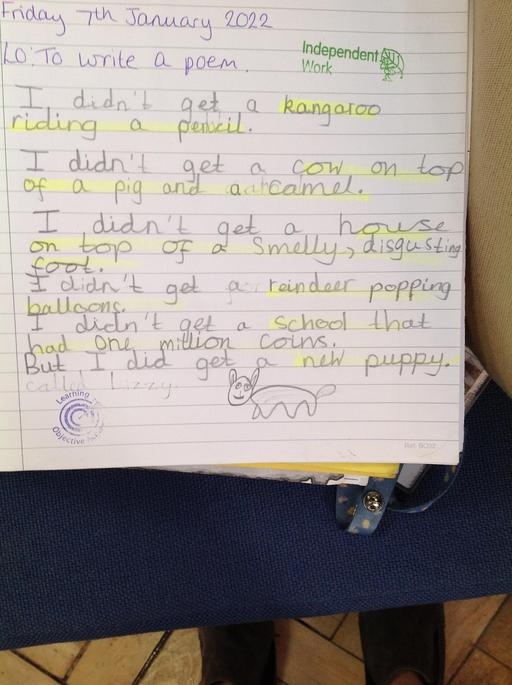 Friday 7th January 2022
LO: To write a poem.
Independent
Work
I didn't get a kangaroo
riding a pencil.
I didn't get a cow on top
of a pig and a camel.
I didn't get a house
on top of a smelly, disgusting
foot.
I didn't get a reindeer popping
balloons.
I didn't get a school that
had one million coins.
But I did get a new puppy.
called Lizzy.
Learning
Objective